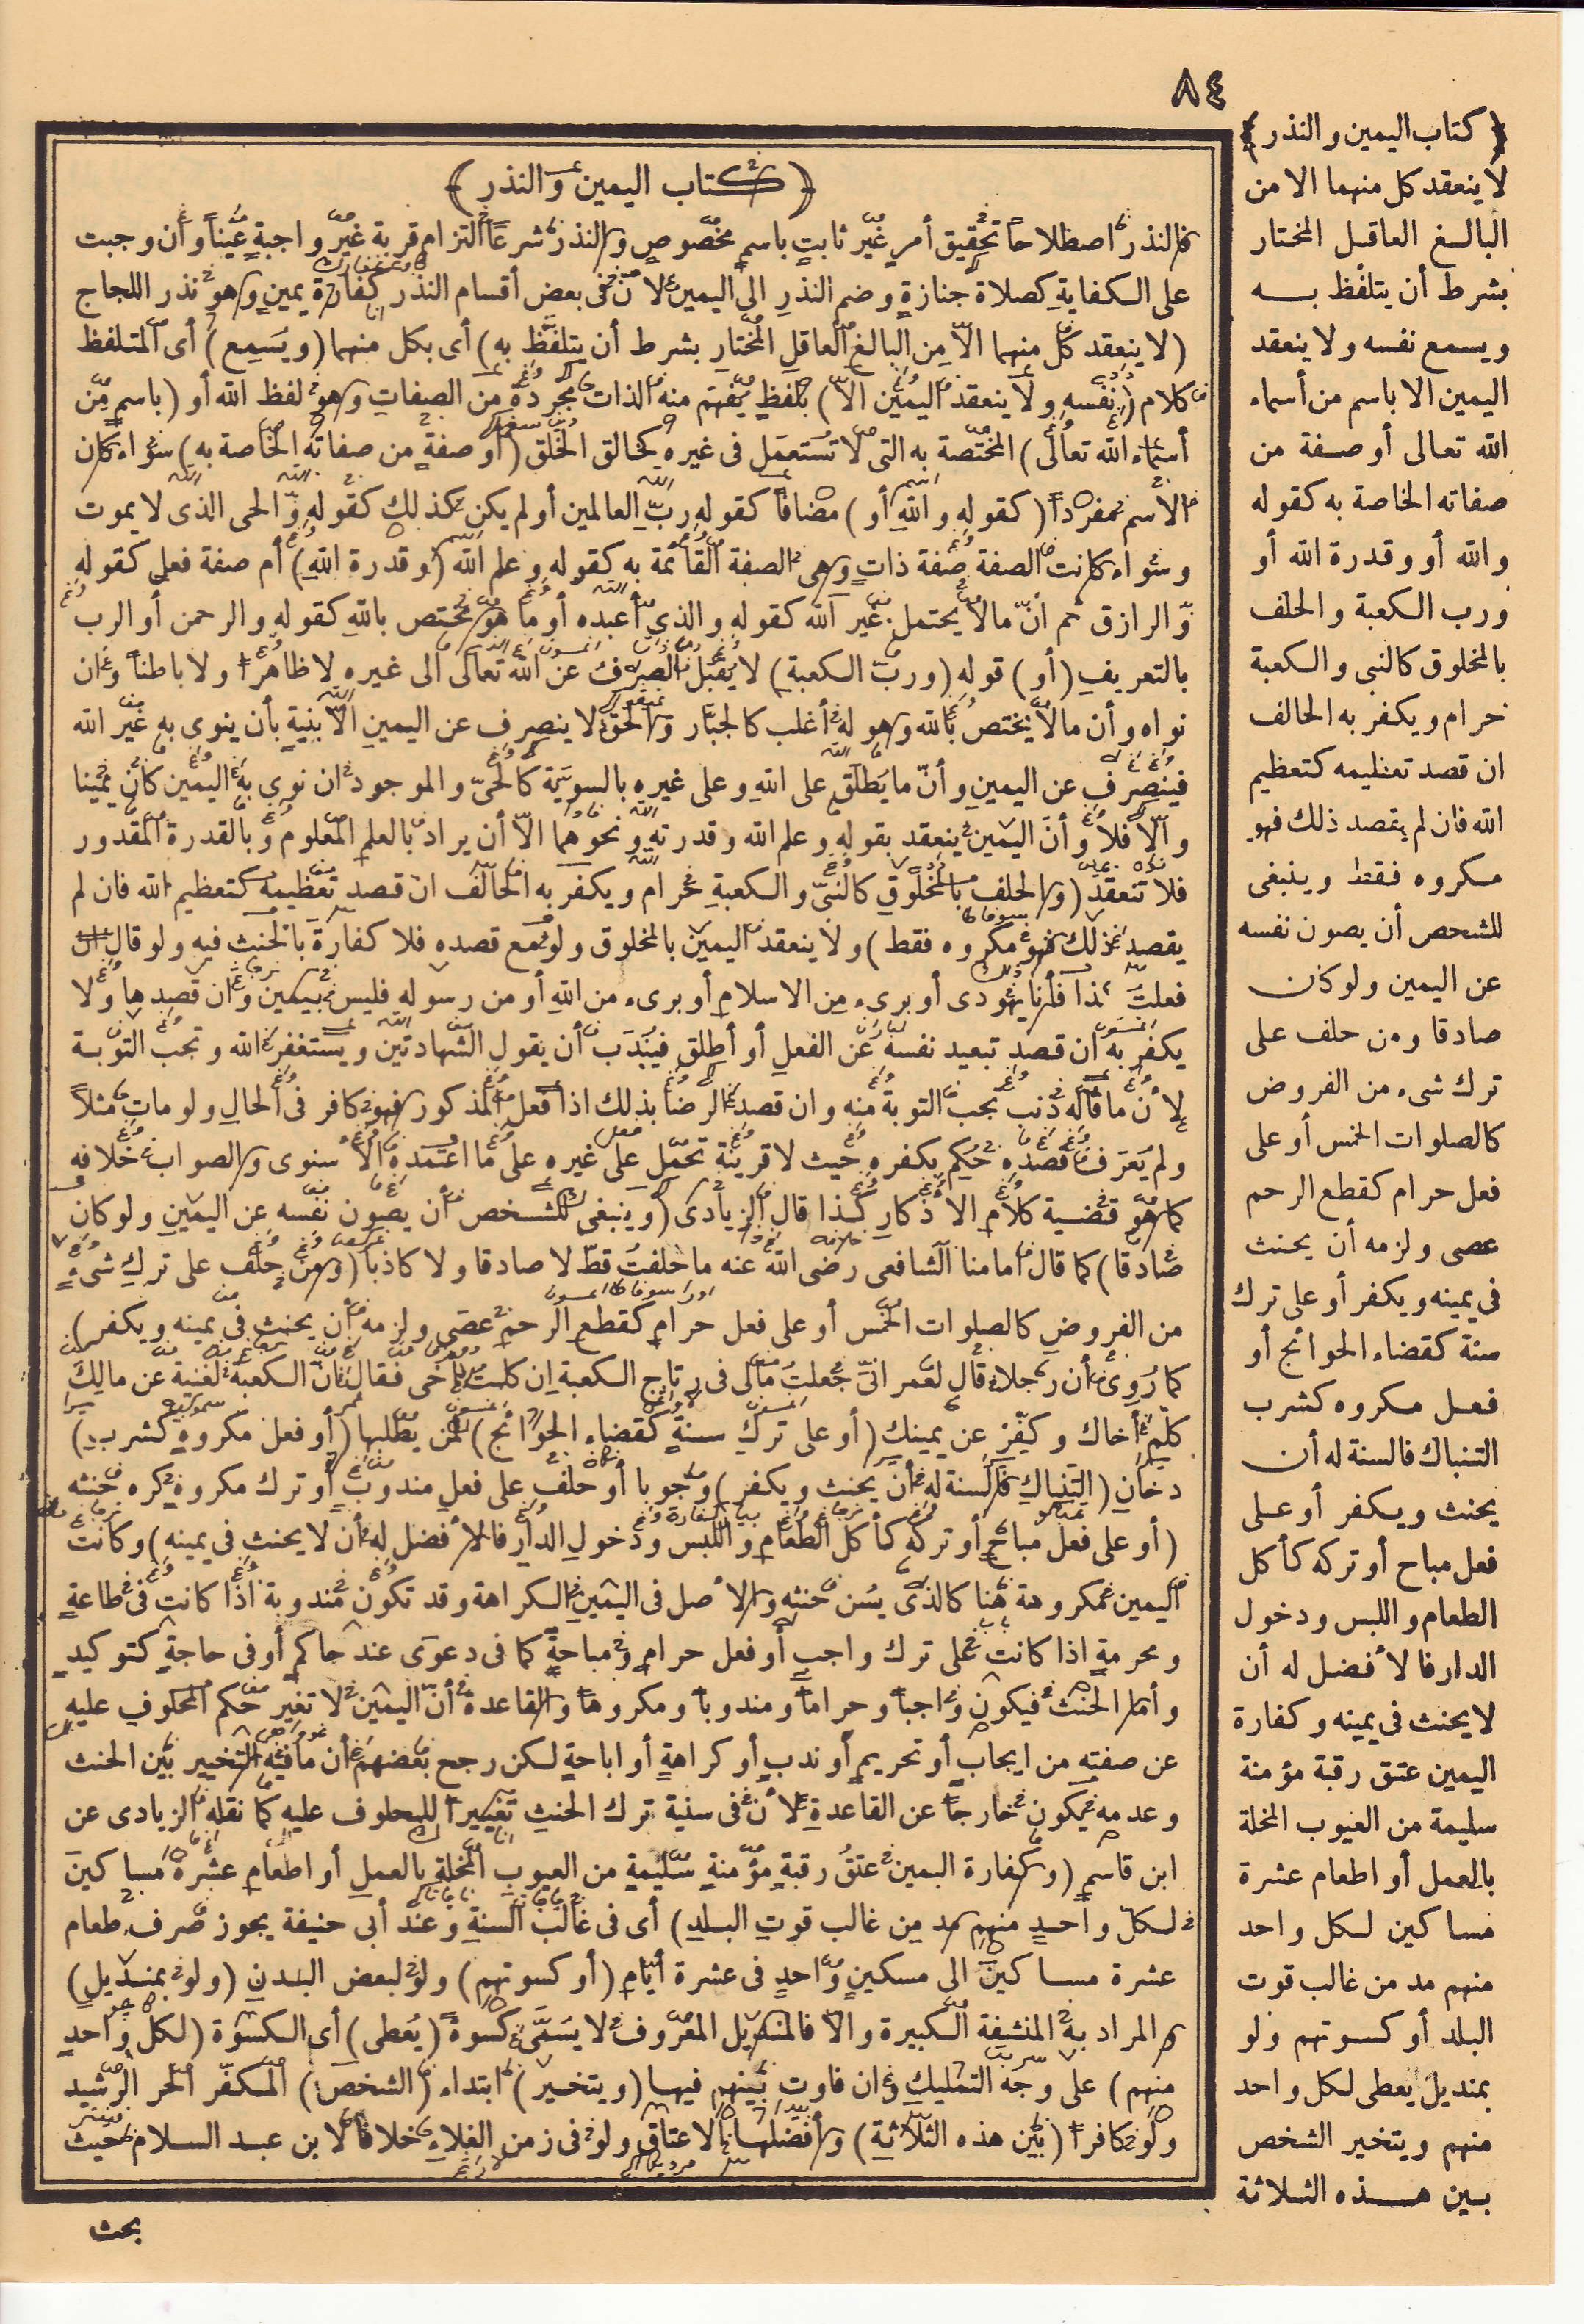 ٨٤
﴿ كتاب اليمين والنذر ﴾
لا ينعقد كل منهما الا من
البالغ العاقل المختار
بشرط أن يتلفظ به
ويسمع نفسه ولا ينعقد
اليمين الا باسم من أسماء
الله تعالى أو صفة من
صفاته الخاصة به كقوله
والله أو وقدرة الله أو
ورب الكعبة والحلف
بالمخلوق كالنبى والكعبة
حرام ويكفر به الحالف
ان قصد تعظيمه كتعظيم
الله فان لم يقصد ذلك فهو
مكروه فقط وينبغى
للشخص أن يصون نفسه
عن اليمين ولو كان
صادقا ومن حلف على
ترك شىء من الفروض
كالصلوات الخمس أو على
فعل حرام كقطع الرحم
عصى ولزمه أن يحنث
فى يمينه ويكفر أو على ترك
سنة كقضاء الحوائج أو
فعل مكروه كشرب
التنباك فالسنة له أن
يحنث ويكفر أو على
فعل مباح أو تركه كأكل
الطعام واللبس ودخول
الدار فالأفضل له أن
لا يحنث فى يمينه وكفارة
اليمين عتق رقبة مؤمنة
سليمة من العيوب المخلة
بالعمل أو اطعام عشرة
مساكين لكل واحد
منهم مد من غالب قوت
البلد أو كسوتهم ولو
بمنديل يعطى لكل واحد
منهم ويتخير الشخص
بين هذه الثلاثة
﴿ كتاب اليمين والنذر ﴾
فالنذر اصطلاحا تحقيق أمر غير ثابت باسم مخصوص والنذر شرعا التزام قربة غير واجبة عينا وأن وجبت
على الكفاية كصلاة جنازة وضم النذر الى اليمين لان فى بعض أقسام النذر كفارة يمين وهو نذر اللجاج
(لا ينعقد كل منهما الا من البالغ العاقل المختار بشرط أن يتلفظ به) أى بكل منهما (ويسمع) أى المتلفظ
كلام (نفسه ولا ينعقد اليمين الا) بلفظ يفهم منه الذات مجردة من الصفات وهو لفظ الله أو (باسم من
أسماء الله تعالى) المختصة به التى لا تستعمل فى غيره كخالق الخلق (أو صفة من صفاته الخاصة به) سواء كان
الاسم مفردا (كقوله والله أو) مضافا كقوله رب العالمين أو لم يكن كذلك كقوله والحى الذى لا يموت
وسواء كانت الصفة صفة ذات وهى الصفة القائمة به كقوله وعلم الله (وقدرة الله) أم صفة فعل كقوله
والرازق ثم ان ما لا يحتمل غير الله كقوله والذى أعبده أو ما هو مختص بالله كقوله والرحمن أو الرب
بالتعريف (أو) قوله (ورب الكعبة) لا يقبل الصرف عن الله تعالى الى غيره لا ظاهرا ولا باطنا وان
نواه وأن ما لا يختص بالله وهو له أغلب كالجبار والحق لا ينصرف عن اليمين الا بنية بأن ينوى به غير الله
فينصرف عن اليمين وأن ما يطلق على الله وعلى غيره بالسوية كالحى والموجود ان نوى به اليمين كان يمينا
والا فلا وأن اليمين ينعقد بقوله وعلم الله وقدرته ونحوهما الا أن يراد بالعلم المعلوم وبالقدرة المقدور
فلا تنعقد (والحلف بالمخلوق كالنبى والكعبة حرام ويكفر به الحالف ان قصد تعظيمه كتعظيم الله فان لم
يقصد ذلك فهو مكروه فقط) ولا ينعقد اليمين بالمخلوق ولو مع قصده فلا كفارة بالحنث فيه ولو قال ان
فعلت كذا فأنا يهودى أو برىء من الاسلام أو برىء من الله أو من رسوله فليس بيمين وان قصدها ولا
يكفر به ان قصد تبعيد نفسه عن الفعل أو أطلق فيندب أن يقول الشهادتين ويستغفر الله وتجب التوبة
لأن ما قاله ذنب تجب التوبة منه وان قصد الرضا بذلك اذا فعل المذكور فهو كافر فى الحال ولو مات مثلا
ولم يعرف قصده حكم بكفره حيث لا قرينة تحمل على غيره على ما اعتمده الأسنوى والصواب خلافه
كما هو قضية كلام الاذكار كذا قال الزيادى (وينبغى للشخص أن يصون نفسه عن اليمين ولو كان
صادقا) كما قال امامنا الشافعى رضى الله عنه ما حلفت قط لا صادقا ولا كاذبا (ومن حلف على ترك شىء
من الفروض كالصلوات الخمس أو على فعل حرام كقطع الرحم عصى ولزمه أن يحنث فى يمينه ويكفر)
كما روى أن رجلا قال لعمر انى جعلت مالى فى رتاج الكعبة ان كلمت أخى فقال ان الكعبة لغنية عن مالك
كلم أخاك وكفر عن يمينك (أو على ترك سنة كقضاء الحوائج) لمن يطلبها (أو فعل مكروه كشرب)
دخان (التنباك فالسنة له أن يحنث ويكفر) وجوبا أو حلف على فعل مندوب أو ترك مكروه كره حنثه
(أو على فعل مباح أو تركه كأكل الطعام واللبس ودخول الدار فالأفضل له أن لا يحنث فى يمينه) وكانت
اليمين مكروهة هنا كالذى يسن حنثه والأصل فى اليمين الكراهة وقد تكون مندوبة اذا كانت فى طاعة
ومحرمة اذا كانت على ترك واجب أو فعل حرام ومباحة كما فى دعوى عند حاكم أو فى حاجة كتوكيد
وأما الحنث فيكون واجبا وحراما ومندوبا ومكروها والقاعدة أن اليمين لا تغير حكم المحلوف عليه
عن صفته من ايجاب أو تحريم أو ندب أو كراهة أو اباحة لكن رجح بعضهم أن ما فيه التخيير بين الحنث
وعدمه يكون خارجا عن القاعدة لأن فى سنية ترك الحنث تغييرا للمحلوف عليه كما نقله الزيادى عن
ابن قاسم (وكفارة اليمين عتق رقبة مؤمنة سليمة من العيوب المخلة بالعمل أو اطعام عشرة مساكين
لكل واحد منهم مد من غالب قوت البلد) أى فى غالب السنة وعند أبى حنيفة يجوز صرف طعام
عشرة مساكين الى مسكين واحد فى عشرة أيام (أو كسوتهم) ولو لبعض البدن (ولو بمنديل)
المراد به المنشفة الكبيرة والا فالمنديل المعروف لا يسمى كسوة (يعطى) أى الكسوة (لكل واحد
منهم) على وجه التمليك وان فاوت بينهم فيها (ويتخير) ابتداء (الشخص) المكفر الحر الرشيد
ولو كافرا (بين هذه الثلاثة) وأفضلها الاعتاق ولو فى زمن الغلاء خلافا لابن عبد السلام حيث
بحث